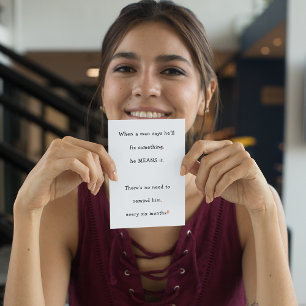 When a man says he'll
fix something,
he MEANS it.
There's no need to
remind him,
every six months!